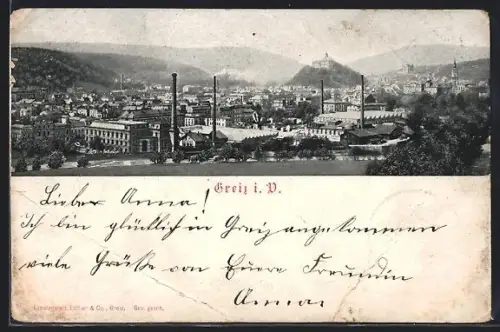 Greiz i. V.
Liebe Anna!
Ich bin glücklich in Greiz angekommen
viele Grüße von Euere Freundin
Anna.
& Co., Greiz. Ges. gesch.